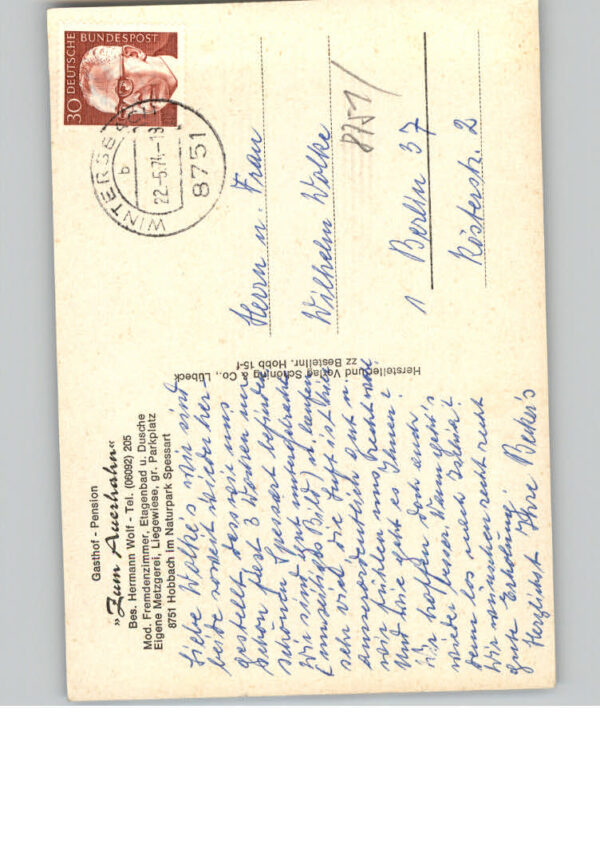 Gasthof - Pension
»Zum Auerhahn«
Bes. Hermann Wolf - Tel. (06092) 205
Mod. Fremdenzimmer, Etagenbad u. Dusche
Eigene Metzgerei, Liegewiese, gr. Parkplatz
8751 Hobbach im Naturpark Spessart
Liebe Wolke's wir sind
beide soweit wieder her
gestellt, dass wir uns
schon fast 3 Wochen im
schönen Spessart befinden
Wir sind gut untergebracht
(umseitiges Bild) u. laufen
sehr viel, die Luft ist hier
ausserordentlich gut u.
wir fühlen uns recht wohl.
Und wie geht es Ihnen?
Wir hoffen doch auch
wieder besser. Wann geht's
denn los nach Ischia?
Wir wünschen recht recht
gute Erholung
Herzlichst Ihre Becker's
Hersteller und Verlag Schöning & Co., Lübeck
zz Bestellnr. Hobb 15-f
30 DEUTSCHE BUNDESPOST
WINTERSB
b
22.-5.74.-18
8751
Herrn u. Frau
Wilhelm Wolke
8751/
1 Berlin 37
Kösterstr. 2